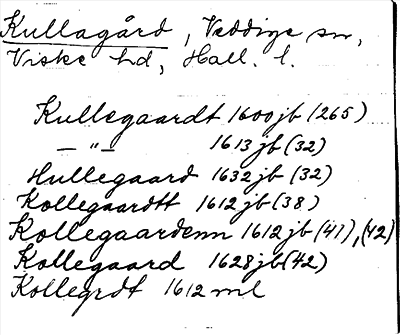 Kullagård, Veddige sn,
Viske hd, Hall. l.
Kullegaardt 1600 jb (265)
— " — 1613 jb (32)
Hullegaard 1632 jb (32)
Kollegaardtt 1612 jb (38)
Kollegaardenn 1612 jb (41), (42)
Kollegaard 1628 jb (42)
Kollegrdt 1612 ml